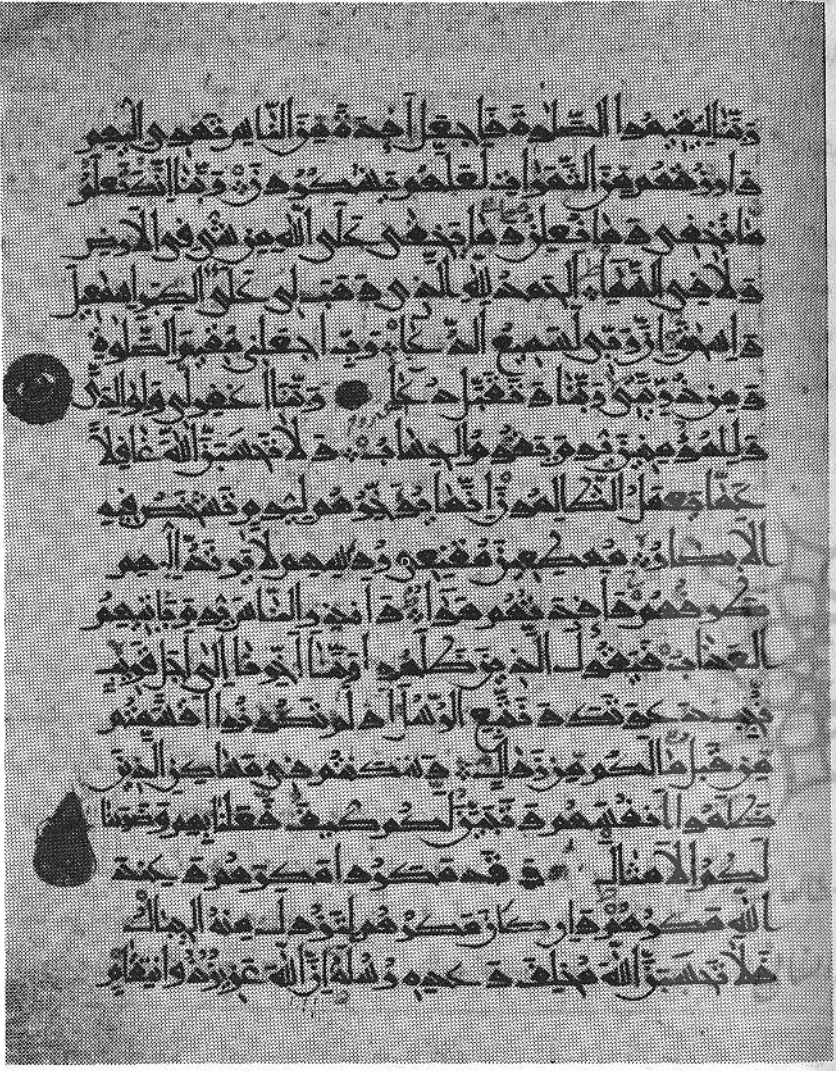 رَبَّنَا لِيُقِيمُوا الصَّلَوٰةَ فَاجْعَلْ أَفْئِدَةً مِّنَ النَّاسِ تَهْوِى إِلَيْهِمْ
وَارْزُقْهُم مِّنَ الثَّمَرَاتِ لَعَلَّهُمْ يَشْكُرُونَ رَبَّنَا إِنَّكَ تَعْلَمُ
مَا نُخْفِى وَمَا نُعْلِنُ وَمَا يَخْفَى عَلَى اللَّهِ مِن شَىْءٍ فِى الْأَرْضِ
وَلَا فِى السَّمَاءِ الْحَمْدُ لِلَّهِ الَّذِى وَهَبَ لِى عَلَى الْكِبَرِ إِسْمَٰعِيلَ
وَإِسْحَٰقَ إِنَّ رَبِّى لَسَمِيعُ الدُّعَاءِ رَبِّ اجْعَلْنِى مُقِيمَ الصَّلَوٰةِ
وَمِن ذُرِّيَّتِى رَبَّنَا وَتَقَبَّلْ دُعَاءِ رَبَّنَا اغْفِرْ لِى وَلِوَالِدَىَّ
وَلِلْمُؤْمِنِينَ يَوْمَ يَقُومُ الْحِسَابُ وَلَا تَحْسَبَنَّ اللَّهَ غَافِلًا
عَمَّا يَعْمَلُ الظَّالِمُونَ إِنَّمَا يُؤَخِّرُهُمْ لِيَوْمٍ تَشْخَصُ فِيهِ
الْأَبْصَارُ مُهْطِعِينَ مُقْنِعِى رُءُوسِهِمْ لَا يَرْتَدُّ إِلَيْهِمْ
طَرْفُهُمْ وَأَفْئِدَتُهُمْ هَوَاءٌ وَأَنذِرِ النَّاسَ يَوْمَ يَأْتِيهِمُ
الْعَذَابُ فَيَقُولُ الَّذِينَ ظَلَمُوا رَبَّنَا أَخِّرْنَا إِلَى أَجَلٍ قَرِيبٍ
نُّجِبْ دَعْوَتَكَ وَنَتَّبِعِ الرُّسُلَ أَوَلَمْ تَكُونُوا أَقْسَمْتُم
مِّن قَبْلُ مَا لَكُم مِّن زَوَالٍ وَسَكَنتُمْ فِى مَسَاكِنِ الَّذِينَ
ظَلَمُوا أَنفُسَهُمْ وَتَبَيَّنَ لَكُمْ كَيْفَ فَعَلْنَا بِهِمْ وَضَرَبْنَا
لَكُمُ الْأَمْثَالَ وَقَدْ مَكَرُوا مَكْرَهُمْ وَعِندَ
اللَّهِ مَكْرُهُمْ وَإِن كَانَ مَكْرُهُمْ لِتَزُولَ مِنْهُ الْجِبَالُ
فَلَا تَحْسَبَنَّ اللَّهَ مُخْلِفَ وَعْدِهِ رُسُلَهُ إِنَّ اللَّهَ عَزِيزٌ ذُو انتِقَامٍ